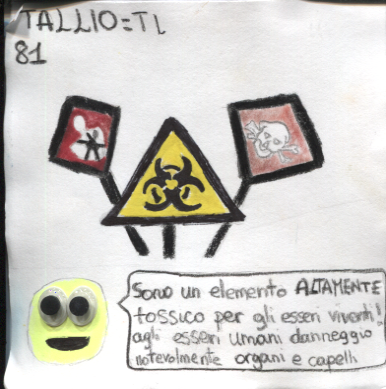 TALLIO=TL
81
Sono un elemento ALTAMENTE
tossico per gli esseri viventi!
agli esseri umani danneggio
notevolmente organi e capelli